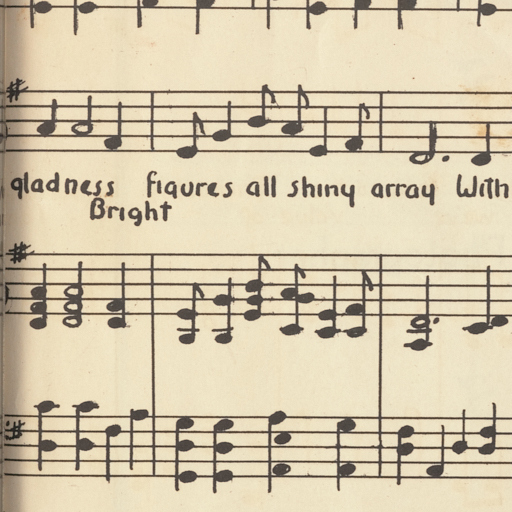 gladness figures all shiny array With
Bright